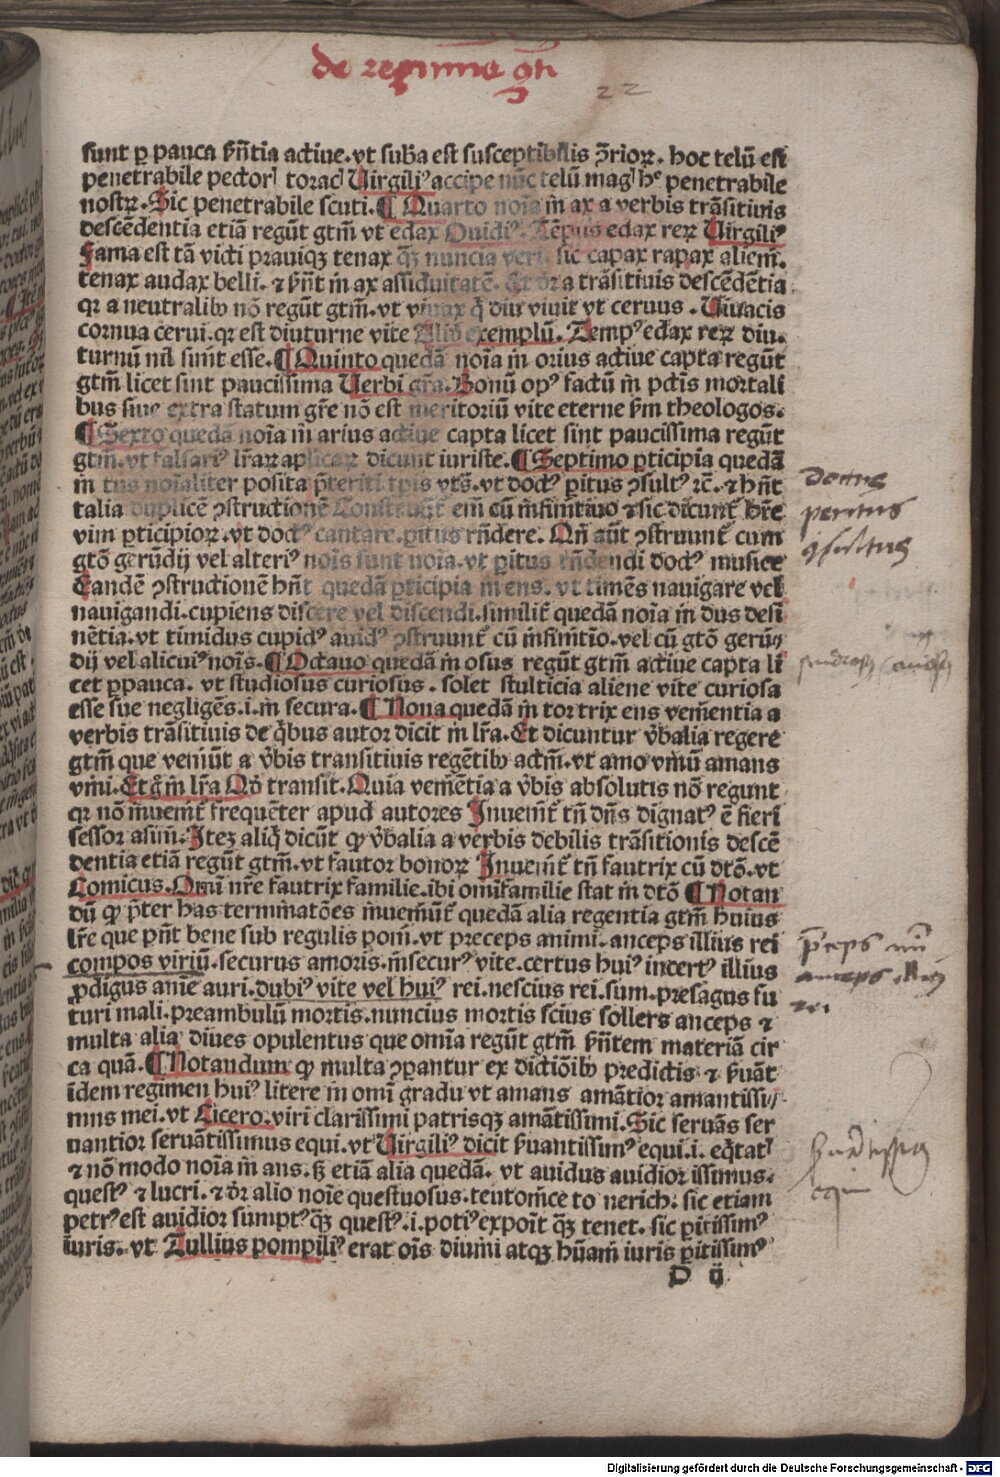 de regimine gti
22
sunt ꝑ pauca ẜñtia actiue. vt suba est susceptibilis ↄ̃trioꝝ. hoc telũ est
penetrabile pectorꝭ toracꝭ Uirgiliꝰ accipe nũc telũ magꝭ hᵉ penetrabile
nostꝝ. Sic penetrabile scuti. ¶ Quarto noĩa ĩn ax a verbis trãsitiuis
descẽdentia etiã regũt gtm̃ vt edax Ouidiꝰ. Tẽpus edax reꝝ Uirgiliꝰ
Fama est tã victi prauiqꝫ tenax qꝫ̃ nuncia veri. sic capax rapax alieni.
tenax audax belli. ⁊ ẜñt ĩn ax assiduitatẽ. Et dr̃ a trãsitiuis descẽdẽtia
qꝛ a neutralibꝫ nõ regũt gtm̃. vt viuax q̃ diu viuit vt ceruus. Uiuacis
cornua cerui. qꝛ est diuturne vite Aliud exemplũ. Tempꝰ edax reꝝ diu-
turnũ nil sinit esse. ¶ Quinto quedã noĩa ĩn orius actiue capta regũt
gtm̃ licet sint paucissima Uerbi gr̃a. Bonũ opꝰ factũ ĩn pctĩs mortali
bus siue extra statum gr̃e nõ est meritoriũ vite eterne ẜm theologos.
¶ Sexto quedã noĩa ĩn arius actiue capta licet sint paucissima regũt
gtm̃. vt falsariꝰ lr̃aꝝ aplicaꝝ dicunt iuriste. ¶ Septimo ꝑticipia quedã
ĩn tus noĩaliter posita p̃teriti tꝑis vtꝭ. vt doctꝰ ꝑitus ↄsultꝰ ⁊c. ⁊ hñt
talia duplicẽ ↄstructionẽ Construũt̃ em̃ cũ ĩnfinitiuo ⁊ sic dicunt̃ hr̃e
vim ꝑticipioꝝ. vt doctꝰ cantare. ꝑitus rñdere. Qñ aũt ↄstruunt̃ cum
gtõ gerũdij vel alteriꝰ noĩs sunt noĩa. vt ꝑitus rñdendi doctꝰ musice
Eandẽ ↄstructionẽ hñt quedã ꝑticipia ĩn ens. vt timẽs nauigare vel
nauigandi. cupiens discere vel discendi. similit̃ quedã noĩa ĩn dus desi
nẽtia. vt timidus cupidꝰ auidꝰ ↄstruunt̃ cũ ĩnfinitĩo. vel cũ gtõ gerũ⸗
dij vel alicuiꝰ noĩs. ¶ Octauo quedã ĩn osus regũt gtm̃ actiue capta li
cet ꝑpauca. vt studiosus curiosus. solet stulticia aliene vite curiosa
esse sue negligẽs. i. ĩn secura. ¶ Nona quedã ĩn tor trix ens veniẽntia a
verbis trãsitiuis de q̃bus autor dicit ĩn lr̃a. Et dicuntur ṽbalia regere
gtm̃ que veniũt a ṽbis transitiuis regẽtibꝫ actm̃. vt amo vinũ amans
vini. Et q̃ ĩn lr̃a Qð transit. Quia veniẽtia a ṽbis absolutis nõ regunt
qꝛ nõ ĩnueniũt̃ frequẽter apud autores Inuenit̃ tñ dñs dignatꝰ ẽ fieri
sessor asini. Iteꝫ aliq̃ dicũt ꝙ ṽbalia a verbis debilis trãsitionis descẽ
dentia etiã regũt gtm̃. vt fautor bonoꝝ Inuenit̃ tñ fautrix cũ dtõ. vt
Comicus. Omĩ nr̃e fautrix familie. ibi omĩ familie stat ĩn dtõ ¶ Notan
dũ ꝙ p̃ter has terminatões ĩnueniũt̃ quedã alia regentia gtm̃ huius
lr̃e que pñt bene sub regulis poni. vt preceps animi. anceps illius rei
compos viriũ. securus amoris. ĩnsecurꝰ vite. certus huiꝰ incertꝰ illius
ꝓdigus anĩe auri. dubiꝰ vite vel huiꝰ rei. nescius rei. sum. presagus fu
turi mali. preambulũ mortis. nuncius mortis scius sollers anceps ⁊
multa alia diues opulentus que omĩa regũt gtm̃ ẜñtem materiã cir
ca quã. ¶ Notandum ꝙ multa ↄꝑantur ex dictiõibꝫ predictis ⁊ ẜuãt
ĩdem regimen huiꝰ litere ĩn omĩ gradu vt amans amãtior amantissi⸗
mus mei. vt Cicero. viri clarissimi patrisqꝫ amãtissimi. Sic seruãs ser
uantior seruãtissimus equi. vt Uirgiliꝰ dicit ẜuantissimꝰ equi. i. eq̃tatꝭ
⁊ nõ modo noĩa ĩn ans. ẜꝫ etiã alia quedã. vt auidus auidior issimus.
questꝰ ⁊ lucri. ⁊ dr̃ alio noĩe questuosus. teutonĩce to nerich. sic etiam
petrꝰ est auidior sumptꝰ qꝫ̃ questꝰ. i. potiꝰ expoĩt qꝫ̃ tenet. sic ꝑitissimꝰ
iuris. vt Tullius pompiliꝰ erat oĩs diuini atqꝫ hũani iuris ꝑitissimꝰ
D ij
doctus
peritus
ↄsultus
anceps
rei
equi
Digitalisierung gefördert durch die Deutsche Forschungsgemeinschaft - DFG